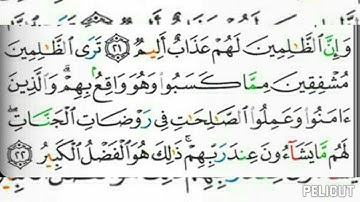 وَإِنَّ ٱلظَّـٰلِمِينَ لَهُمْ عَذَابٌ أَلِيمٌ ٢١ تَرَى ٱلظَّـٰلِمِينَ
مُشْفِقِينَ مِمَّا كَسَبُوا۟ وَهُوَ وَاقِعٌۢ بِهِمْ ۗ وَٱلَّذِينَ
ءَامَنُوا۟ وَعَمِلُوا۟ ٱلصَّـٰلِحَـٰتِ فِى رَوْضَاتِ ٱلْجَنَّاتِ ۖ
لَهُم مَّا يَشَآءُونَ عِندَ رَبِّهِمْ ۚ ذَٰلِكَ هُوَ ٱلْفَضْلُ ٱلْكَبِيرُ ٢٢
PELICUT